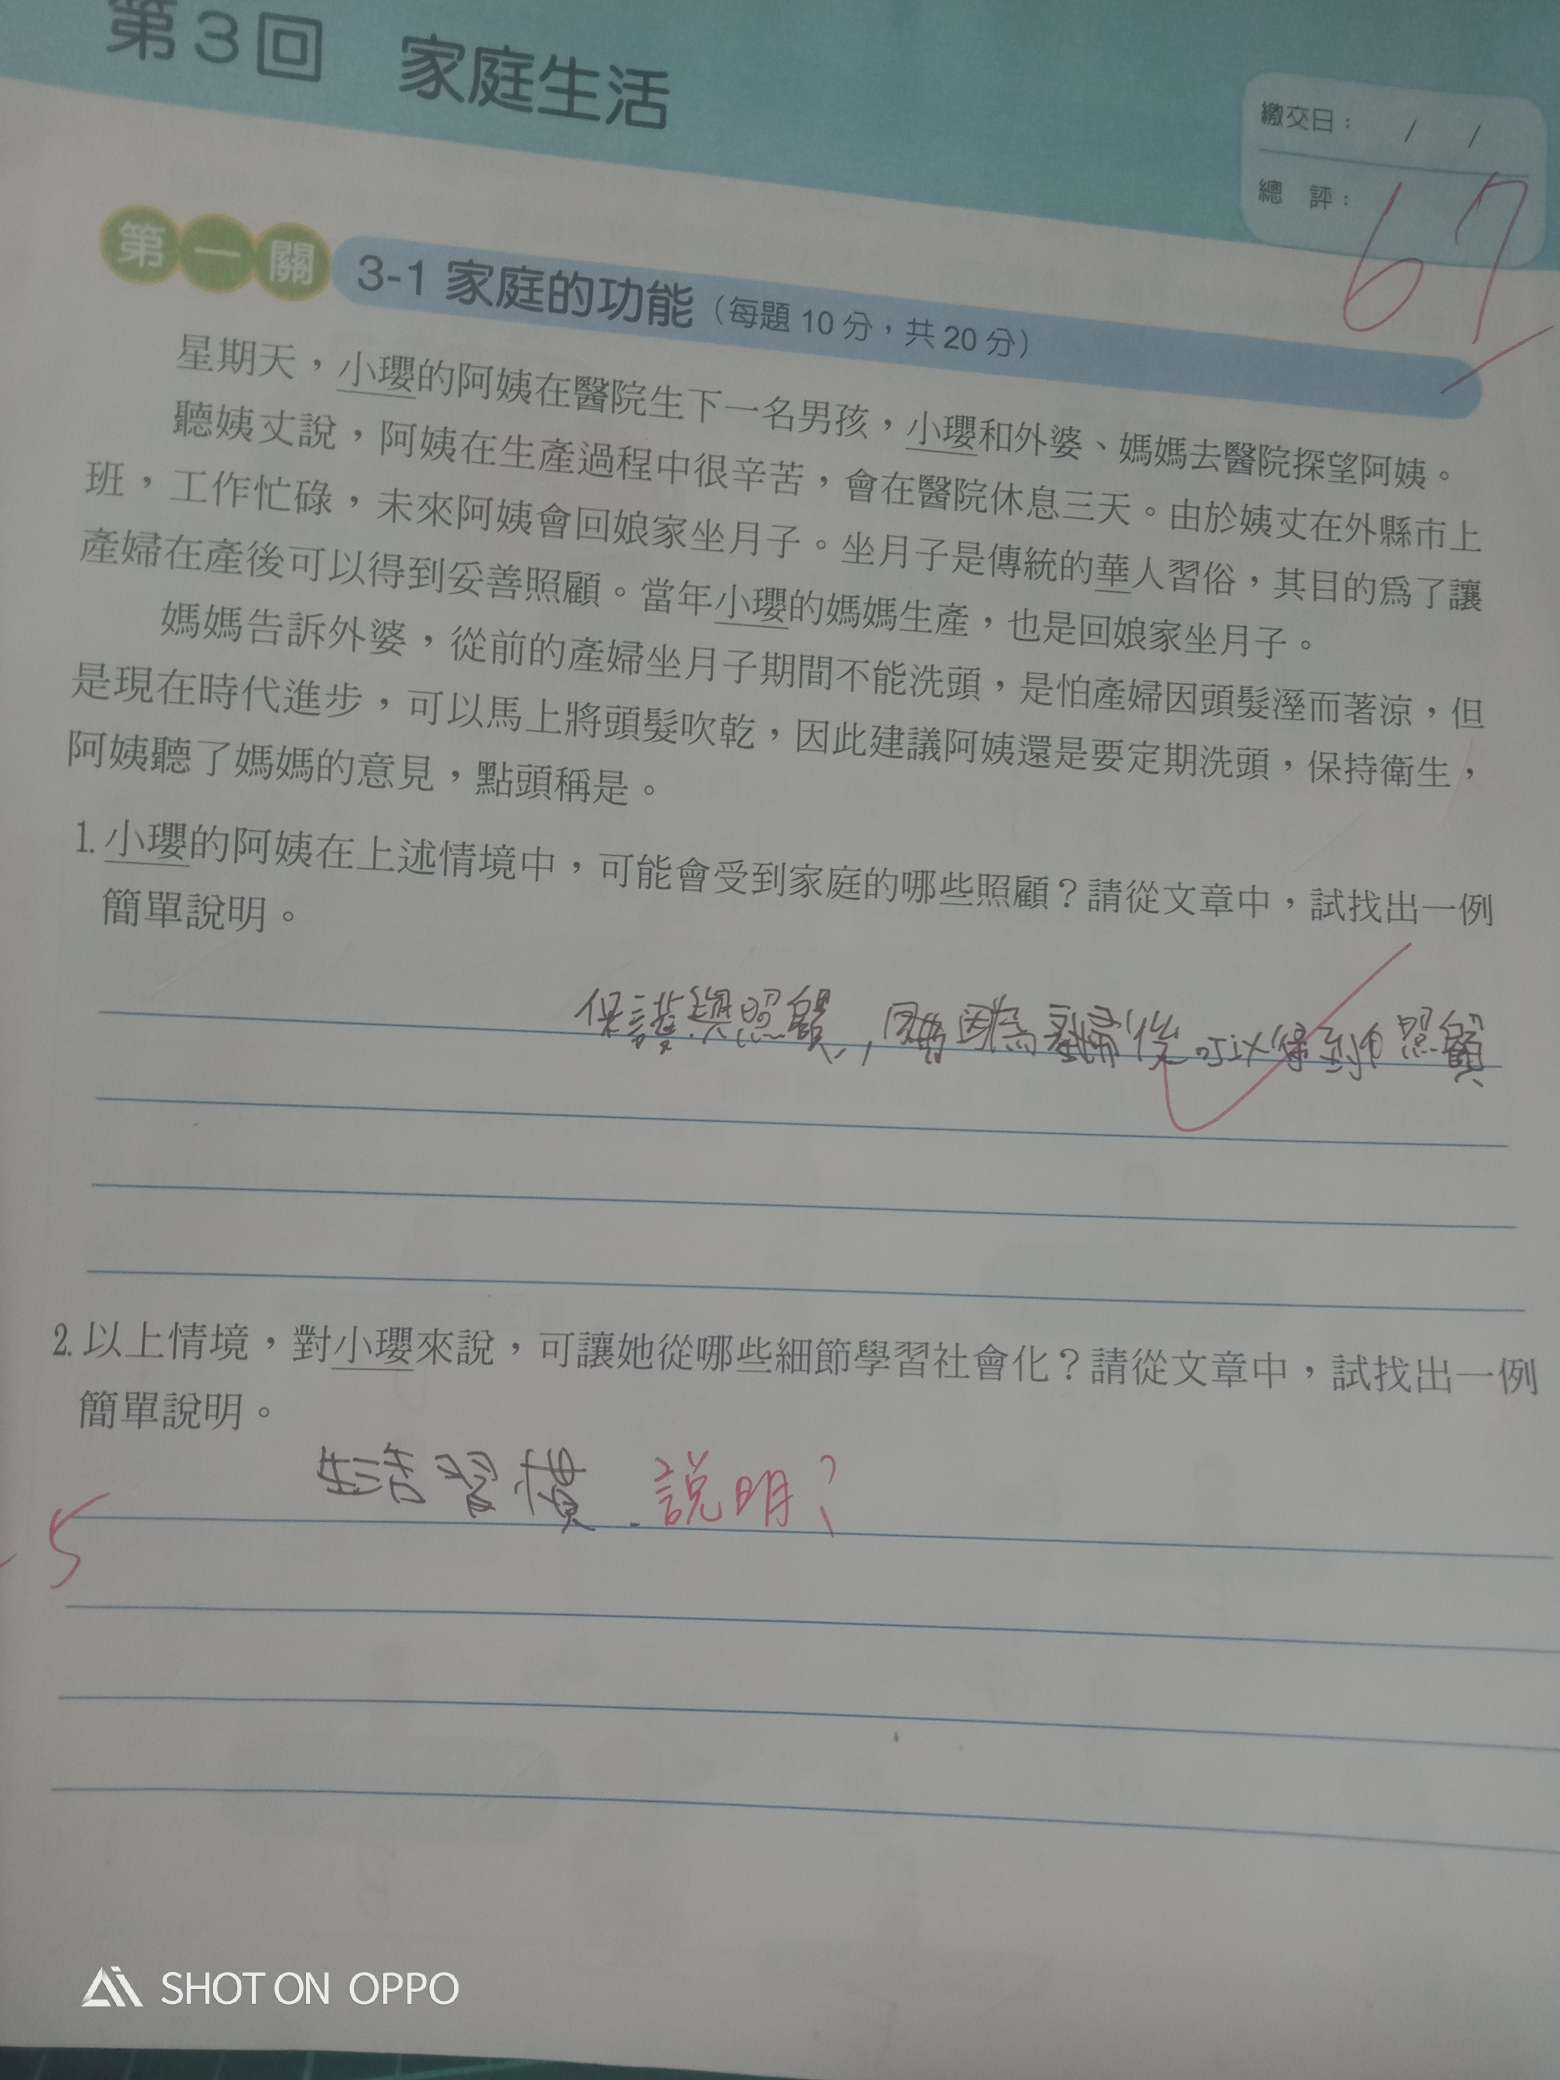 第3回 家庭生活
繳交日： / /
總 評：
67
第一關 3-1 家庭的功能（每題 10 分，共 20 分）
星期天，小瓔的阿姨在醫院生下一名男孩，小瓔和外婆、媽媽去醫院探望阿姨。
聽姨丈說，阿姨在生產過程中很辛苦，會在醫院休息三天。由於姨丈在外縣市上
班，工作忙碌，未來阿姨會回娘家坐月子。坐月子是傳統的華人習俗，其目的為了讓
產婦在產後可以得到妥善照顧。當年小瓔的媽媽生產，也是回娘家坐月子。
媽媽告訴外婆，從前的產婦坐月子期間不能洗頭，是怕產婦因頭髮溼而著涼，但
是現在時代進步，可以馬上將頭髮吹乾，因此建議阿姨還是要定期洗頭，保持衛生，
阿姨聽了媽媽的意見，點頭稱是。
1. 小瓔的阿姨在上述情境中，可能會受到家庭的哪些照顧？請從文章中，試找出一例
簡單說明。
保護與照顧，因為 後可以得到 照顧
2. 以上情境，對小瓔來說，可讓她從哪些細節學習社會化？請從文章中，試找出一例
簡單說明。
生活習橫. 說明？
-5
SHOT ON OPPO